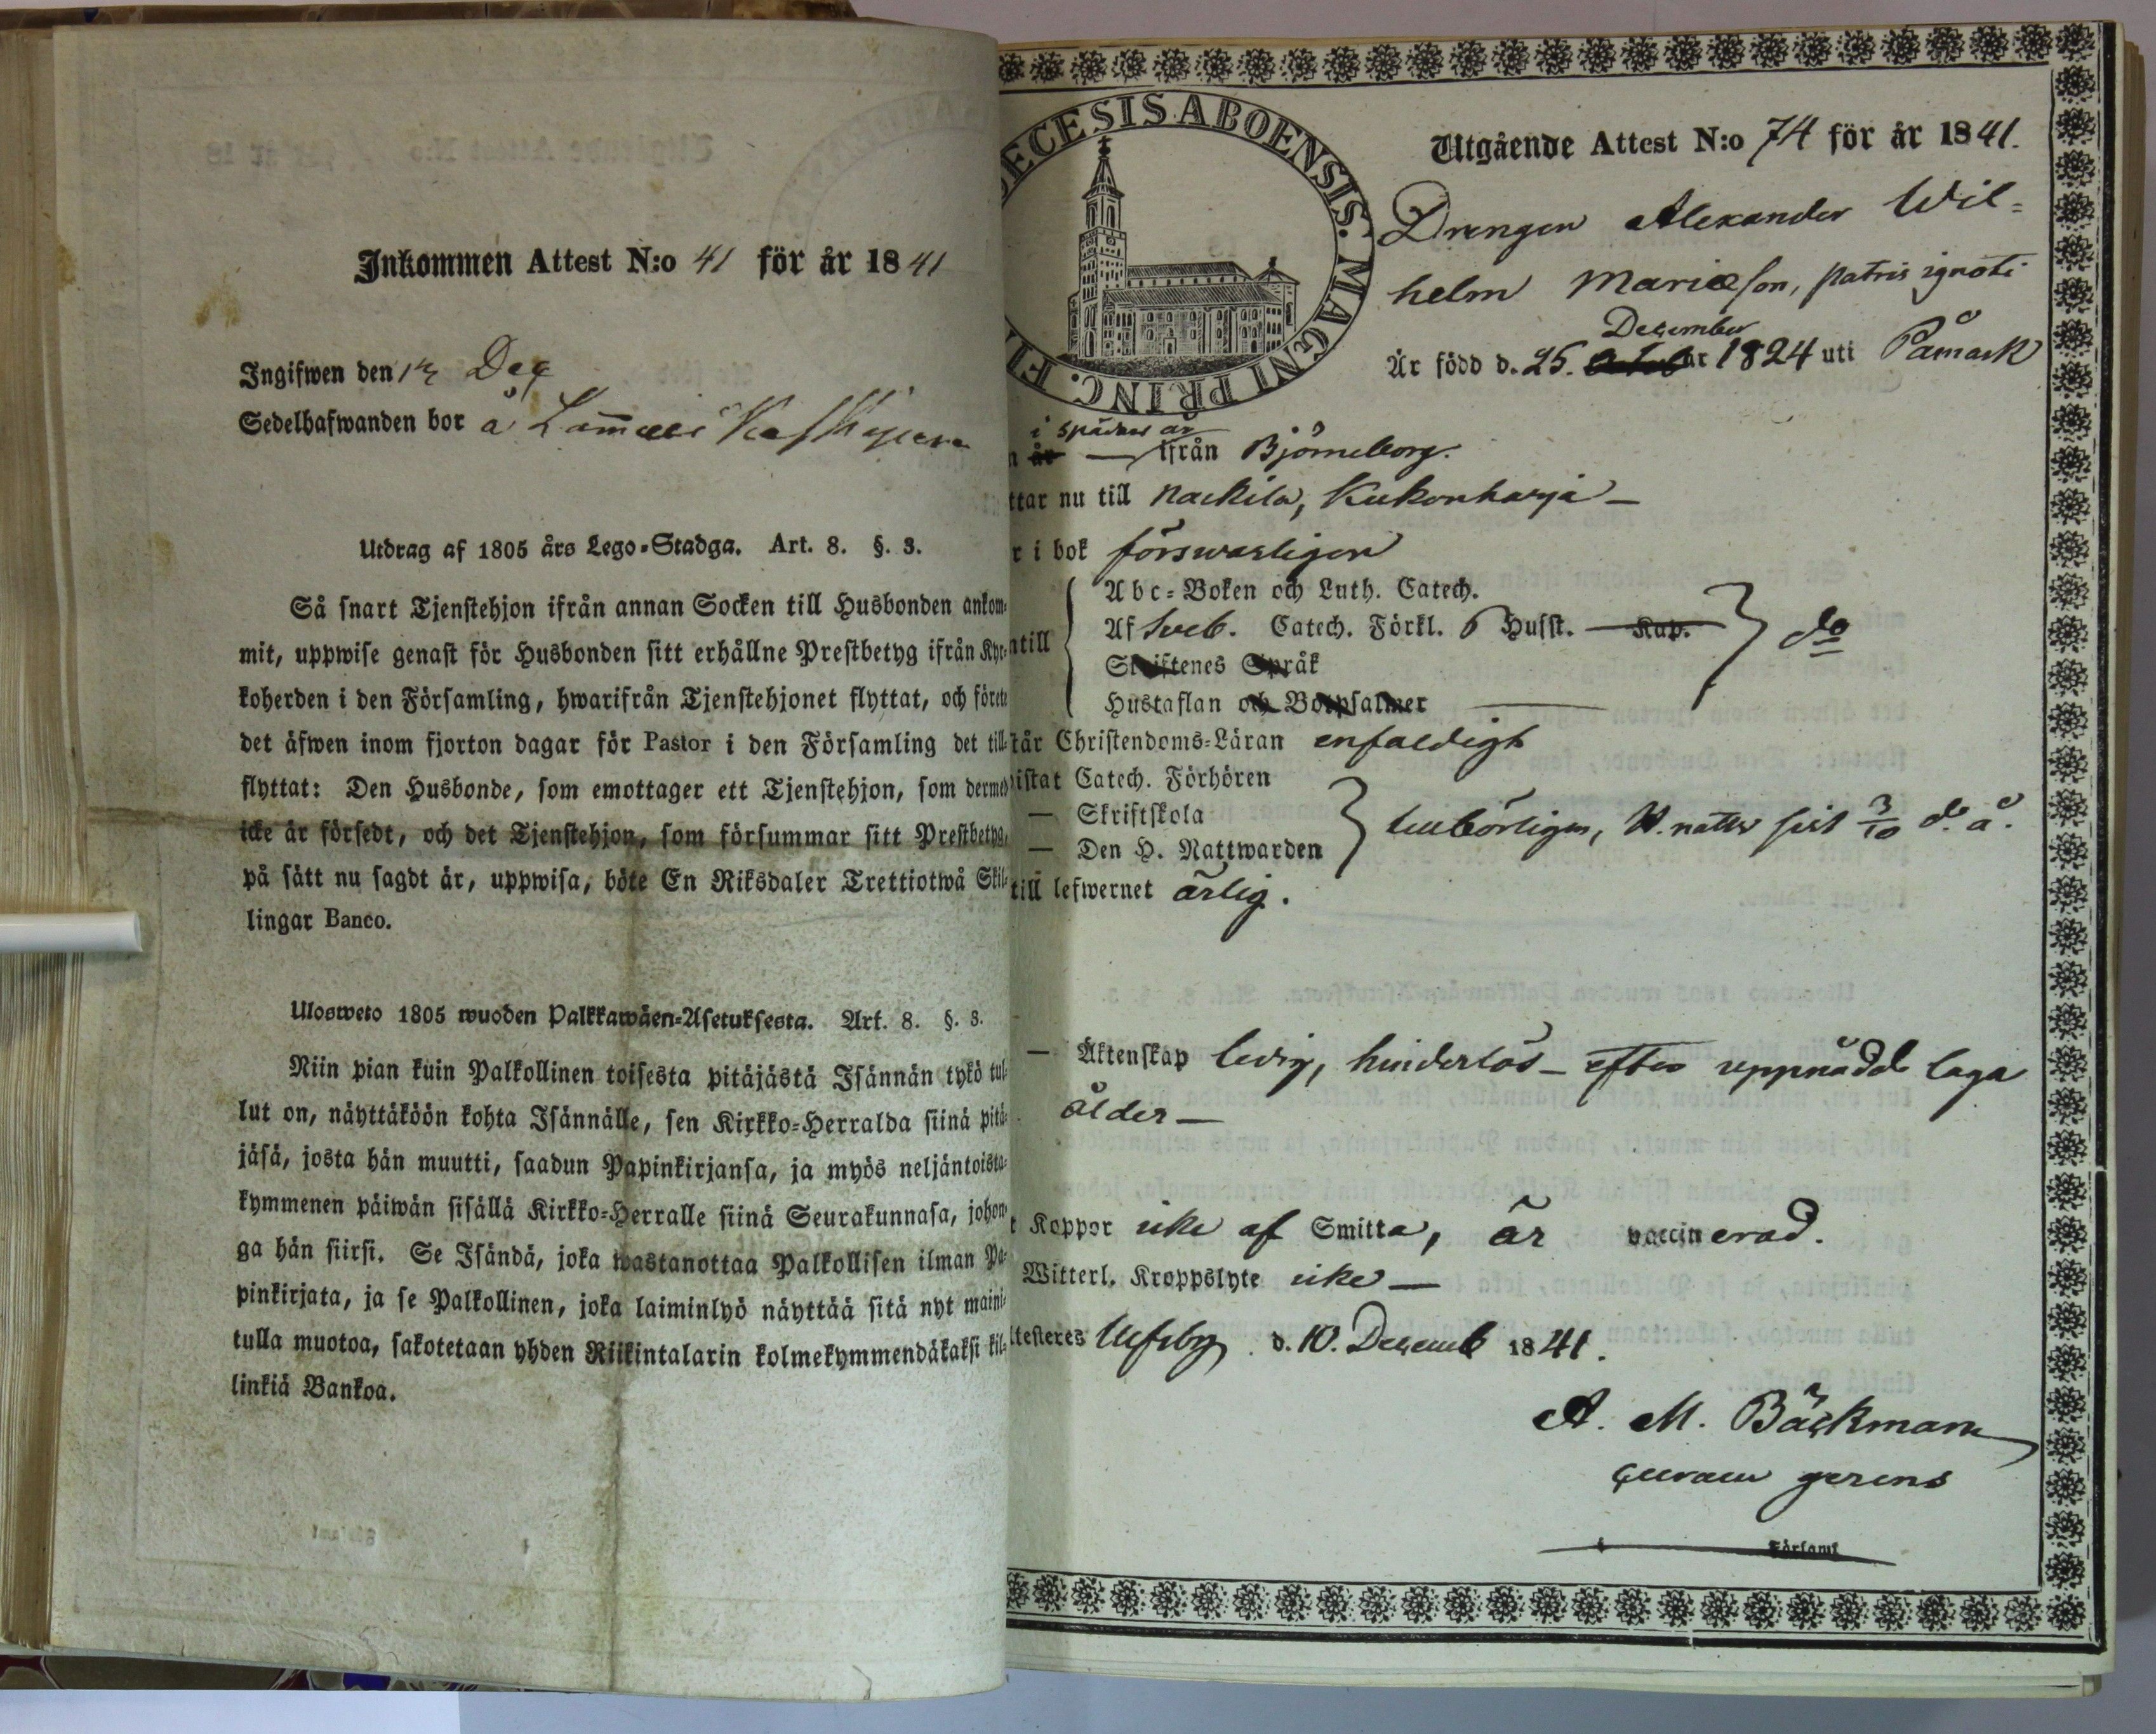 Inkommen Attest N:o 41 för år 1841
Ingifwen den 14 Dec
Sedelhafwanden bor å
Utdrag af 1805 års Lego-Stadga. Art. 8. §. 3.
Så snart Tjenstehjon ifrån annan Socken till Husbonden ankom-
mit, uppwise genast för Husbonden sitt erhållne Prestbetyg ifrån Kyr-
koherden i den Församling, hwarifrån Tjenstehjonet flyttat, och förete
det äfwen inom fjorton dagar för Pastor i den Församling det till-
flyttat: Den Husbonde, som emottager ett Tjenstehjon, som dermed
icke är försedt, och det Tjenstehjon, som försummar sitt Prestbetyg,
på sätt nu sagdt är, uppwisa, böte En Riksdaler Trettiotwå Skil-
lingar Banco.
Ulosweto 1805 wuoden Palkkawäen-Asetuksesta. Art. 8. §. 3.
Niin pian kuin Palkollinen toisesta pitäjästä Isännän tykö tul-
lut on, näyttäköön kohta Isännälle, sen Kirkko-Herralda siinä pitä-
jäsä, josta hän muutti, saadun Papinkirjansa, ja myös neljäntoista-
kymmenen päiwän sisällä Kirkko-Herralle siinä Seurakunnasa, johon-
ga hän siirsi. Se Isändä, joka wastanottaa Palkollisen ilman Pa-
pinkirjata, ja se Palkollinen, joka laiminlyö näyttää sitä nyt maini-
tulla muotoa, sakotetaan yhden Riikintalarin kolmekymmendäkaksi kil-
linkiä Bankoa.
ECESIS ABOENSIS. MAGNI PRINC. FI
Utgående Attest N:o 74 för år 1841.
Drengen Alexander Wil=
helm Mariæson, patris ignoti
December
Är född d. 25. 1824 uti Påmark
i spädare år
n år — ifrån Björneborg.
ttar nu till Nackila, Kukonharja —
r i bok förswarligen
Abc-Boken och Luth. Catech.
ntill Af Sveb. Catech. Förkl. 6 Husst. Kap. do
Skriftenes Språk
Hustaflan och Botpsalmer
tår Christendoms-Läran enfaldigt
istat Catech. Förhören
— Skriftskola
— Den H. Nattwarden tillbörligen, H. nattw sist 3/10 d. å.
till lefwernet ärlig.
— Äktenskap ledig, hinderlös — efter uppnådd laga
ålder —
t Koppor icke af Smitta, är vaccinerad.
Witterl. Kroppslyte icke —
ltesteres Ulfsby d. 10. Decemb 1841.
A. M. Bäckman
curam gerens
Församl